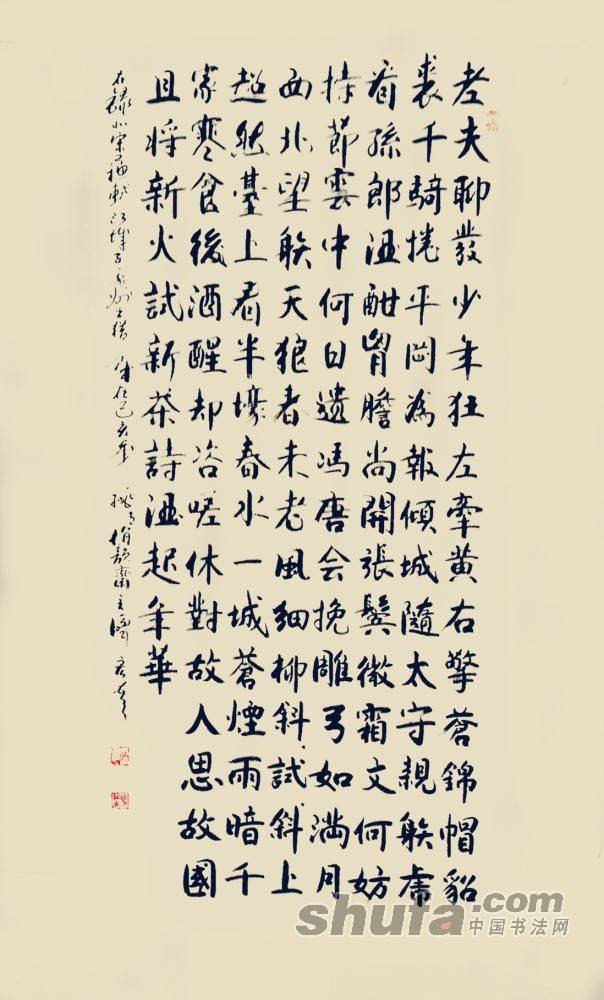 老夫聊發少年狂左牽黃右擎蒼錦帽貂
裘千騎捲平岡為報傾城隨太守親射虎
看孫郎酒酣胸膽尚開張鬢微霜又何妨
持節雲中何日遣馮唐会挽雕弓如滿月
西北望射天狼者未老風細柳斜試斜上
超然臺上看半壕春水一城蒼煙雨暗千
家寒食後酒醒却咨嗟休對故人思故國
且將新火試新茶詩酒趁年華
右錄北宋蘇軾江城子密州出獵 歲在己亥 韻齋主
shufa.com
中国书法网